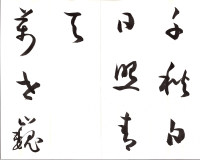 千秋白
日照青
天
萬巍